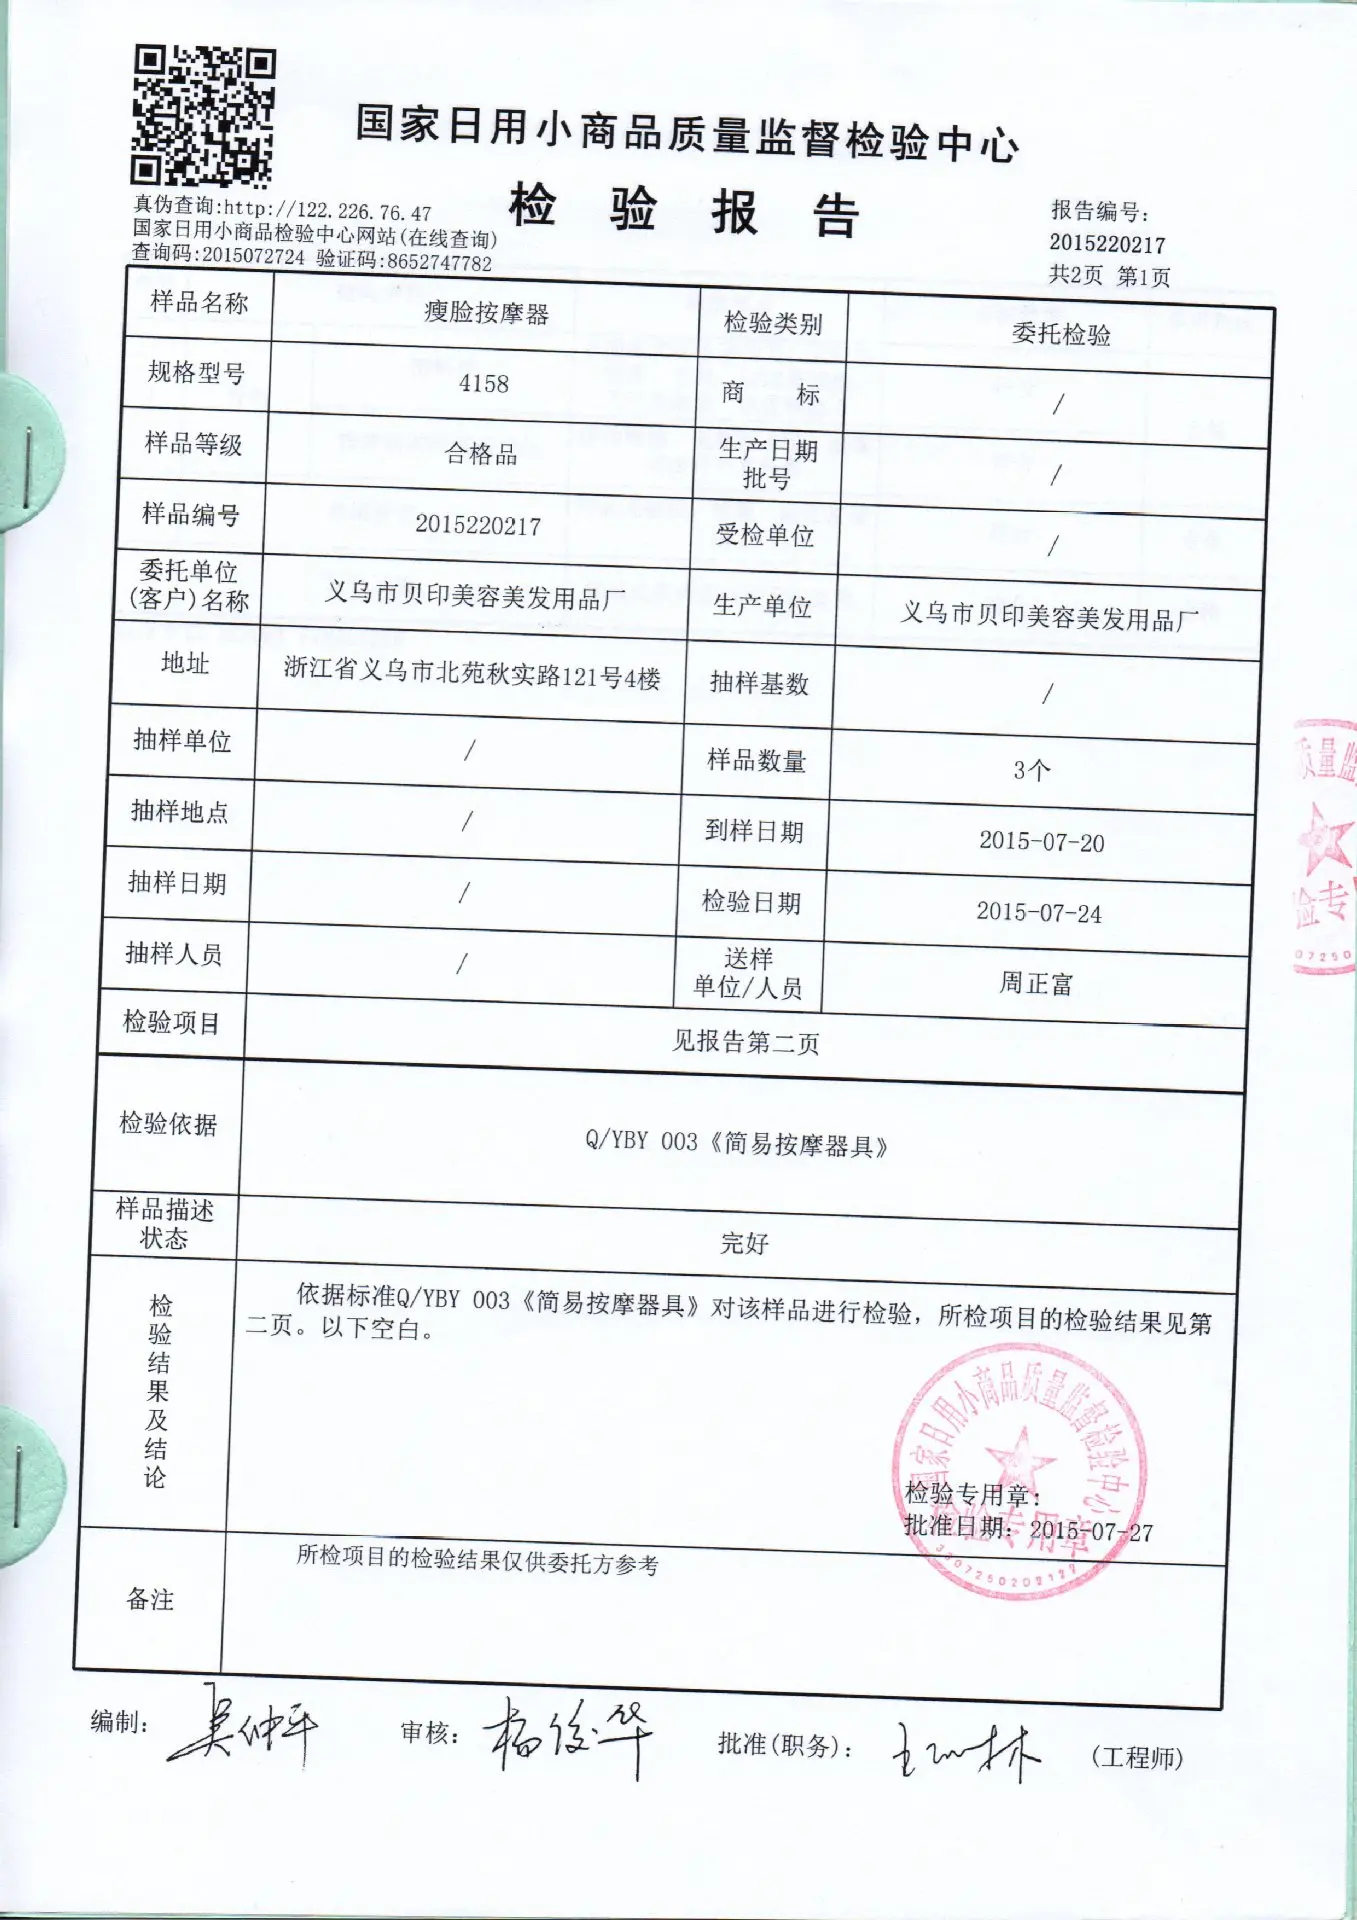 国家日用小商品质量监督检验中心
检 验 报 告
真伪查询:http://122.226.76.47
国家日用小商品检验中心网站(在线查询)
查询码:2015072724 验证码:8652747782
报告编号:
2015220217
共2页 第1页
样品名称 瘦脸按摩器 检验类别 委托检验
规格型号 4158 商 标 /
样品等级 合格品 生产日期 批号 /
样品编号 2015220217 受检单位 /
委托单位 (客户)名称 义乌市贝印美容美发用品厂 生产单位 义乌市贝印美容美发用品厂
地址 浙江省义乌市北苑秋实路121号4楼 抽样基数 /
抽样单位 / 样品数量 3个
抽样地点 / 到样日期 2015-07-20
抽样日期 / 检验日期 2015-07-24
抽样人员 / 送样 单位/人员 周正富
检验项目 见报告第二页
检验依据 Q/YBY 003《简易按摩器具》
样品描述 状态 完好
检验结果及结论
依据标准Q/YBY 003《简易按摩器具》对该样品进行检验，所检项目的检验结果见第
二页。以下空白。
国家日用小商品质量监督检验中心
检验专用章
检验专用章:
批准日期: 2015-07-27
备注 所检项目的检验结果仅供委托方参考
编制: 吴仲平 审核: 杨俊华 批准(职务): (工程师)
质量监
验专
07250